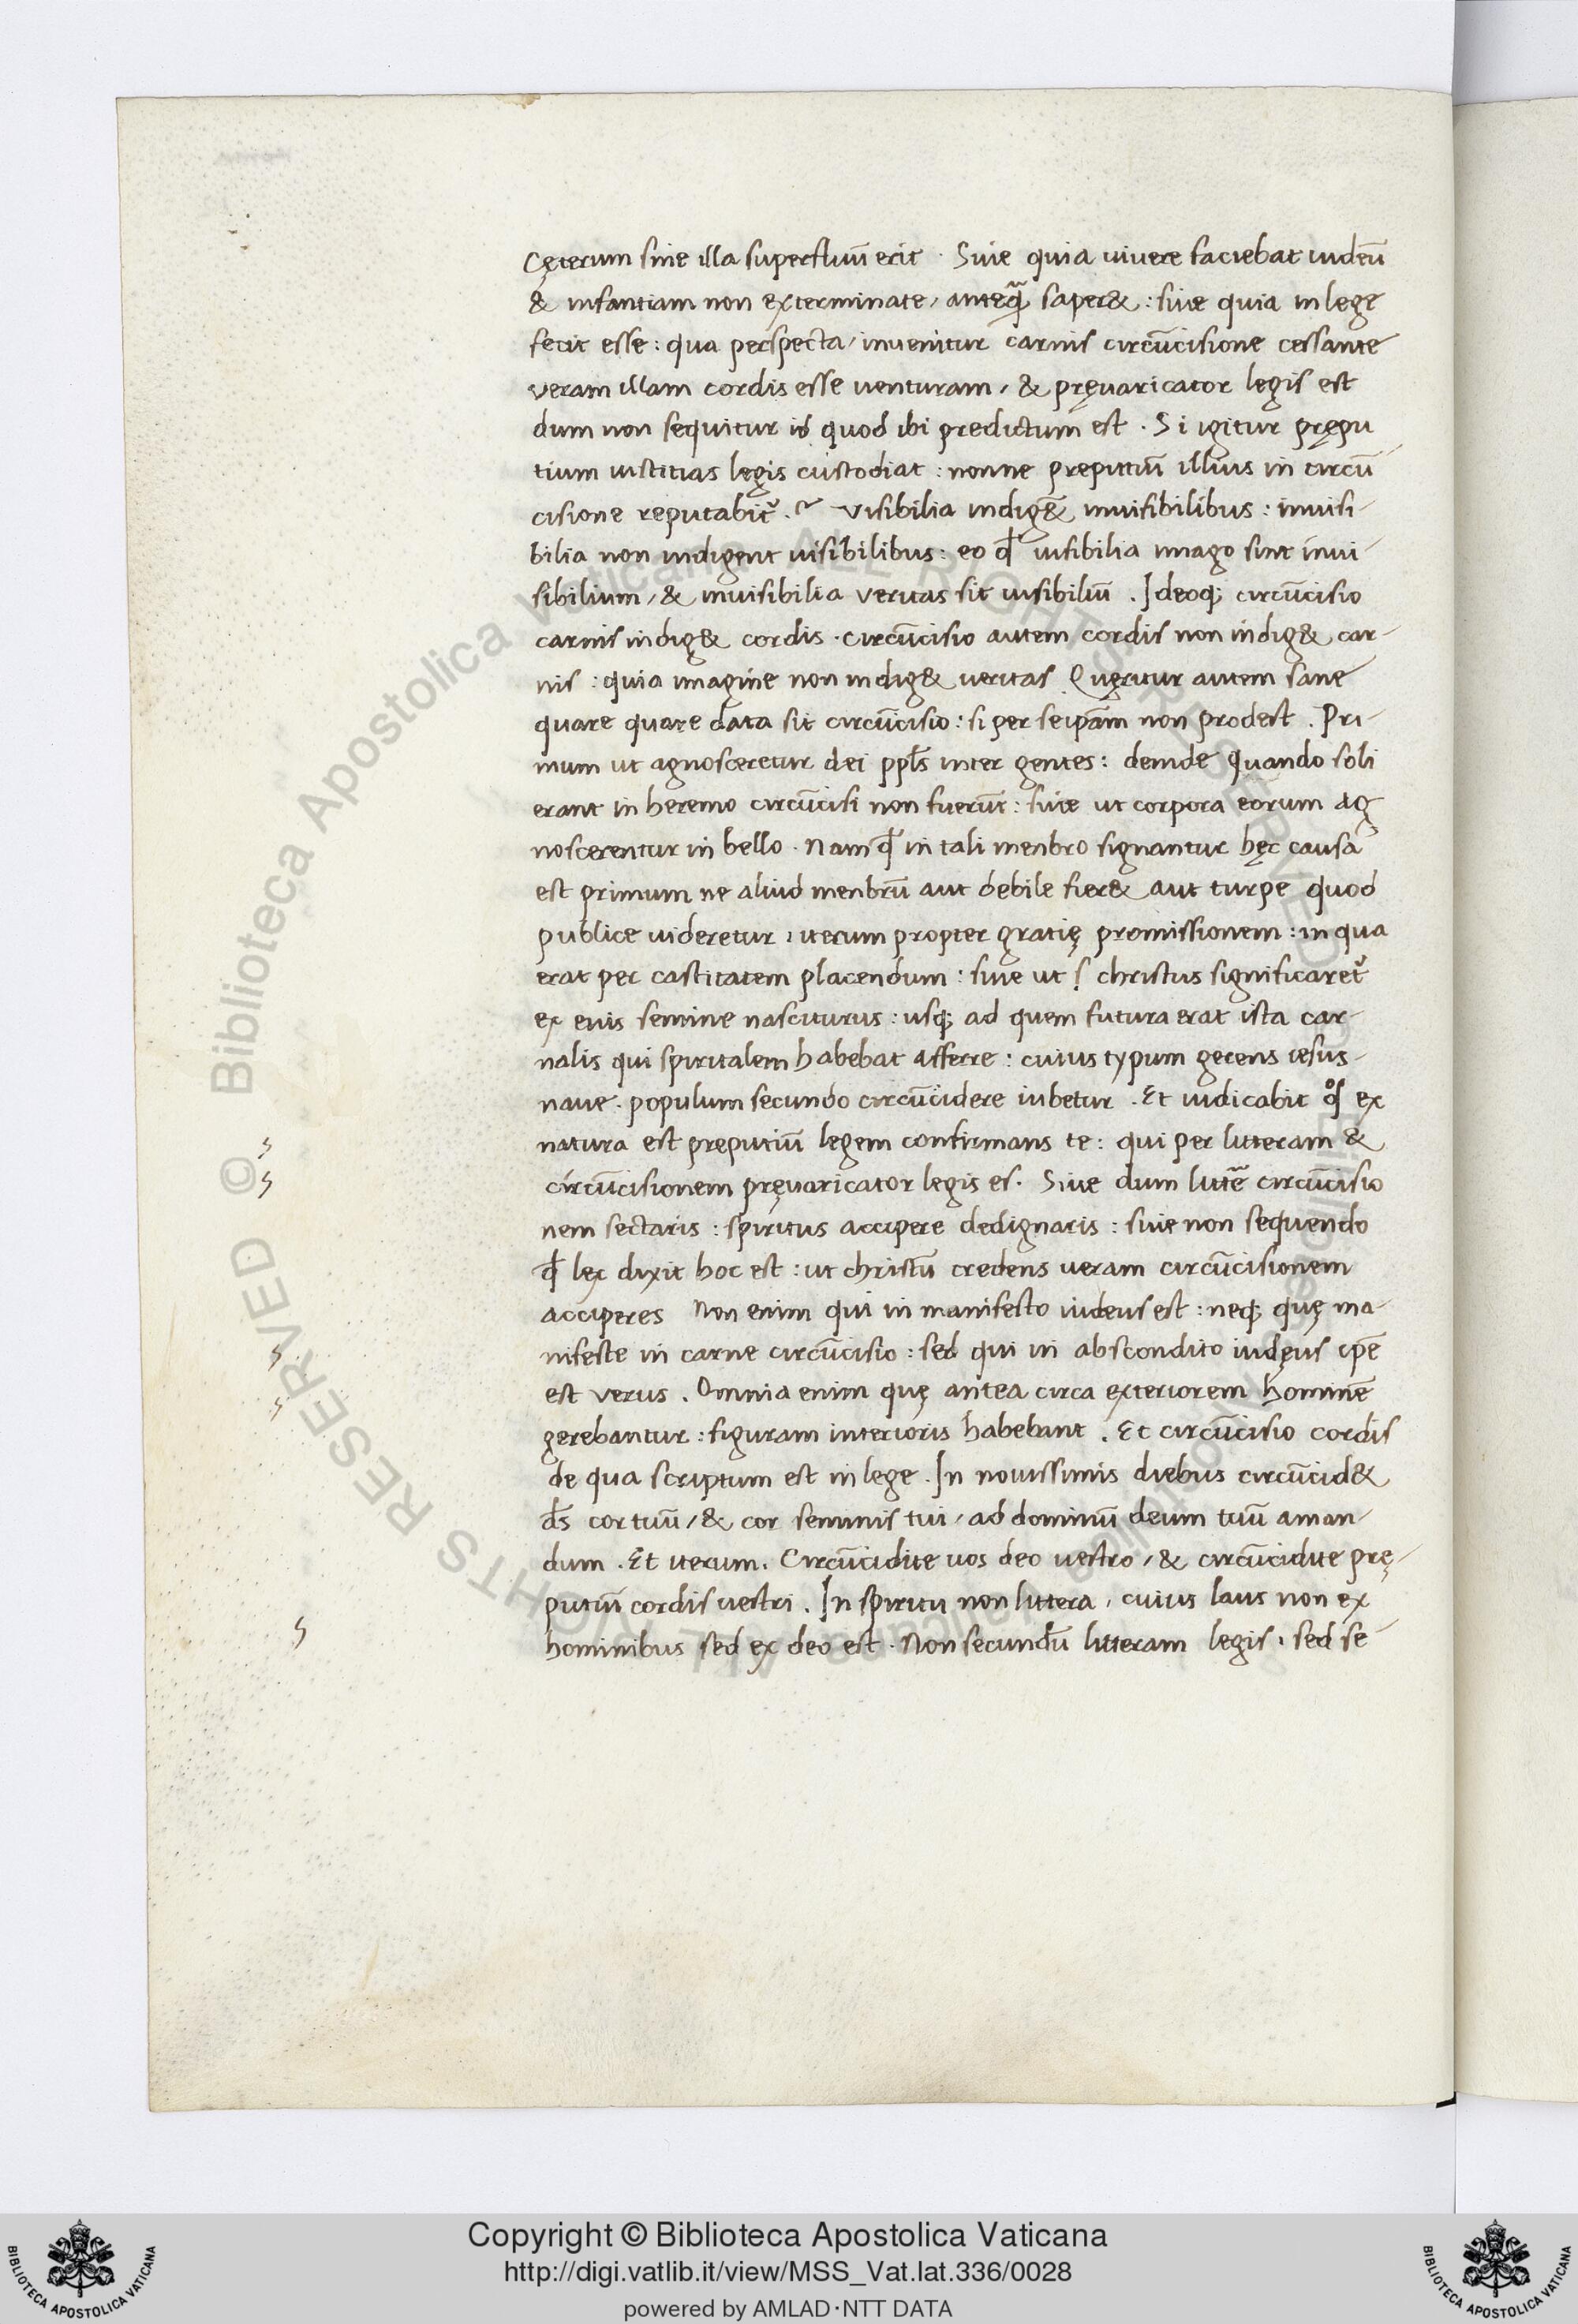 Cęterum sine illa superfluū erit · Siue quia uiuere faciebat iudeū
& infantiam non exterminate, anteq̄ saper&: siue quia in lege
fecit esse: qua perspecta, inuenitur carnis circūcisione cessante
veram illam cordis esse uenturam, & pręuaricator legis est
dum non sequitur id quod ibi predictum est . Si igitur prępu
tium iustitias legis custodiat : nonne preputiū illius in circū
cisione reputabit᷑ . Visibilia indigē& inuisibilibus : inuisi-
bilia non indigent uisibilibus: eo qd̄ uisibilia imago sint inui-
sibilium, & inuisibilia veritas sit uisibiliū . Ideoq; circūcisio
carnis indig& cordis · circūcisio autem cordis non indig& car-
nis : quia imagine non indig& ueritas Quęritur autem sane
quare quare data sit circūcisio : si per seipām non prodest . Pri-
mum ut agnosceretur dei ppl̄s inter gentes: deinde quando soli
erant in heremo circūcisi non fuerūt : siue ut corpora eorum ag
noscerentur in bello · Nam qd̄ in tali menbro signantur hęc causa
est primum ne aliud menbrū aut debile fier& aut turpe quod
publice uideretur, iterum propter gratię promissionem : in qua
erat per castitatem placendum : siue ut ſ christus significaret᷑
ex euis semine nasciturus : usq; ad quem futura erat ista car-
nalis qui spiritalem habebat afferre : cuius typum gerens iesus-
naue . populum secundo circūcidere iubetur . Et iudicabit qͦd ex
natura est preputiū legem confirmans te: qui per litteram &
circūcisionem pręuaricator legis es . Siue dum littē circūcisio
nem sectaris : spiritus accipere dedignaris : siue non sequendo
qd̄ lex dixit hoc est : ut christū credens ueram circūcisionem
acciperes Non enim qui in manifesto iudeus est : neq; quę ma-
nifeste in carne circūcisio : sed qui in abscondito iudęus ip̄e
est verus . Omnia enim quę antea circa exteriorem hominē
gerebantur : figuram interioris habebant . Et circūcisio cordis
de qua scriptum est in lege . In nouissimis diebus circūcid&
d̄s cor tuū, & cor seminis tui, ad dominū deum tuū aman-
dum . Et iterum . Circūcidite uos deo uestro, & circūcidite prę-
putiū cordis uestri . In spiritu non littera, cuius laus non ex
hominibus sed ex deo est . Non secundū litteram legis, sed se
Copyright © Biblioteca Apostolica Vaticana
http://digi.vatlib.it/view/MSS_Vat.lat.336/0028
powered by AMLAD·NTT DATA